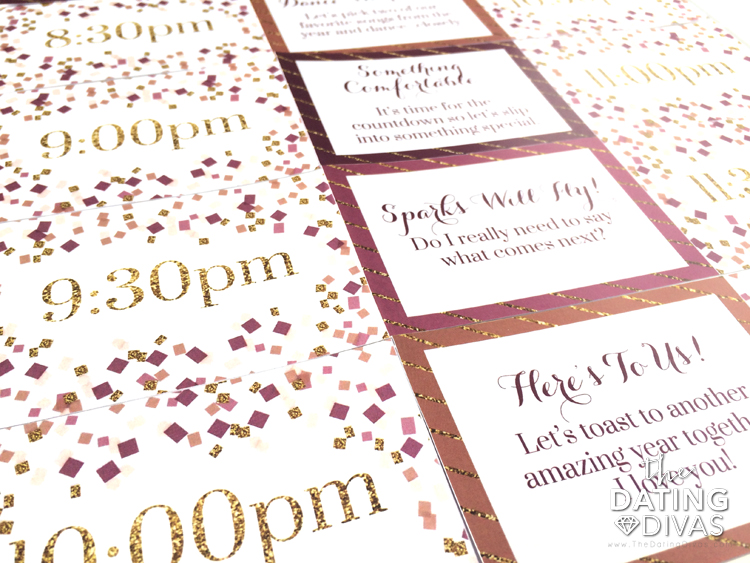 8:30pm
9:00pm
9:30pm
10:00pm
Dance
Let's
favorite songs from the
year and dance
Something
Comfortable
It's time for the
countdown so let's slip
into something special
Sparks Will Fly!
Do I really need to say
what comes next?
Here's To Us!
Let's toast to another
amazing year together
I love you!
11:00pm
The
DATING
DIVAS
www.TheDatingDivas.com